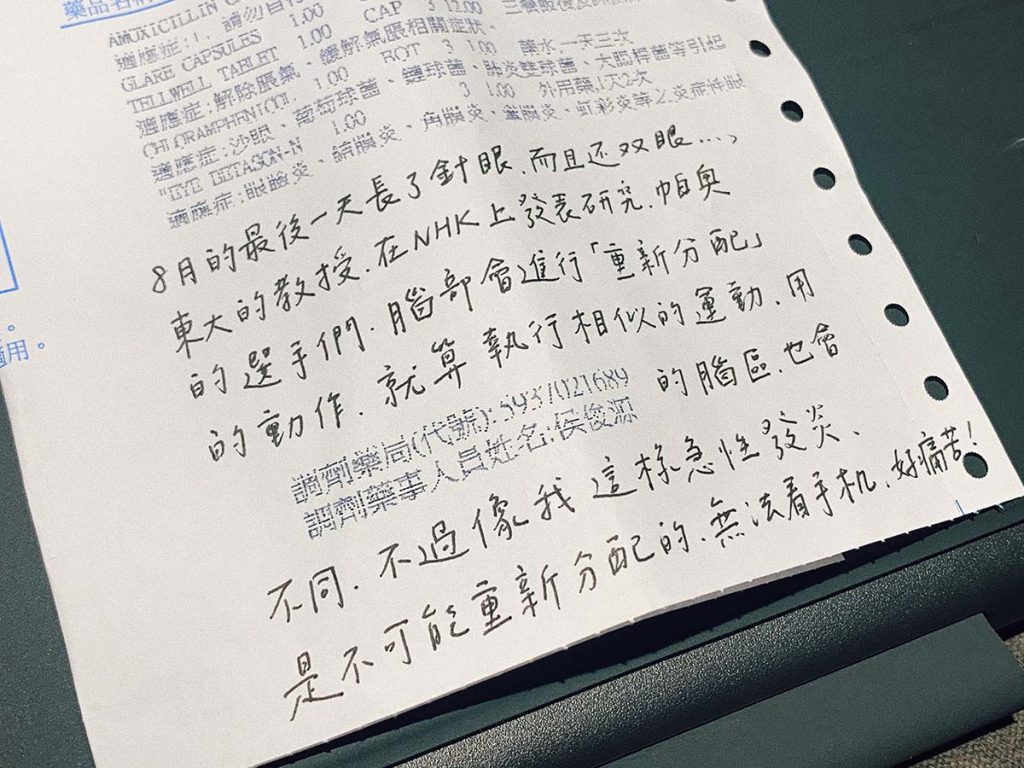 藥品名稱
AMOXICILLIN C CAP 3 12.00 三餐飯後及
適應症:1. 請勿自行
GLARE CAPSULES 1.00
TELLWELL TABLET 1.00
適應症:解除脹氣、緩解氣脹相關症狀。
CHLORAMPHENICOL 1.00 BOT 3 1.00 藥水,一天三次
適應症:沙眼、葡萄球菌、鏈球菌、肺炎雙球菌、大腸桿菌等引起
"EYE BETASON-N 1.00 3 1.00 外用藥,1天2次
適應症:眼瞼炎、結膜炎、角膜炎、鞏膜炎、虹彩炎等之炎症性眼
8月的最後一天長了針眼.而且还双眼…,
東大的教授.在NHK上發表研究.帕奧
的選手們.腦部會進行「重新分配」
的動作.就算執行相似的運動.用
的腦區.也會
調劑藥局(代號):5937021689
調劑藥事人員姓名:侯俊源
不同.不過像我這樣急性發炎、
是不可能重新分配的.無法看手机.好痛苦!
。
適用。